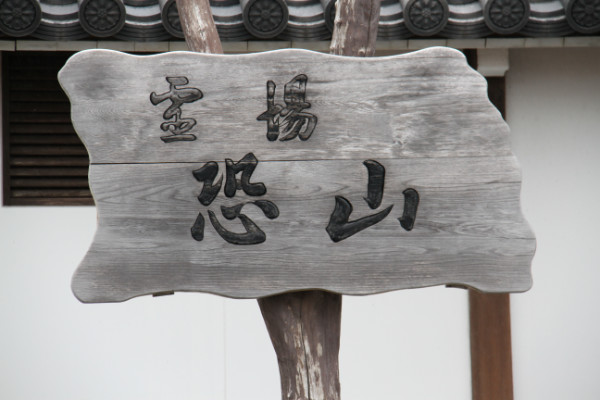 霊場
恐山